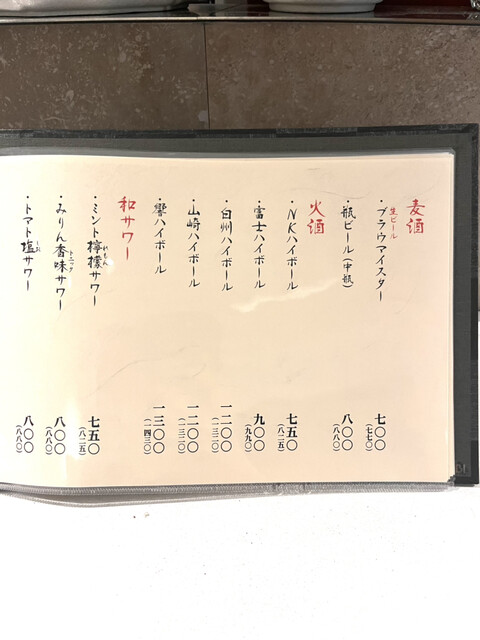 麦酒
生ビール
・ブラウマイスター 七〇〇
(七七〇)
・瓶ビール(中瓶) 八〇〇
(八八〇)
火酒
・NKハイボール 七五〇
(八二五)
・富士ハイボール 九〇〇
(九九〇)
・白州ハイボール 一二〇〇
(一三二〇)
・山崎ハイボール 一二〇〇
(一三二〇)
・響ハイボール 一三〇〇
(一四三〇)
和サワー
・ミント檸檬サワー 七五〇
れもん
(八二五)
・みりん香味サワー 八〇〇
トニック
(八八〇)
・トマト塩サワー 八〇〇
しお
(八八〇)